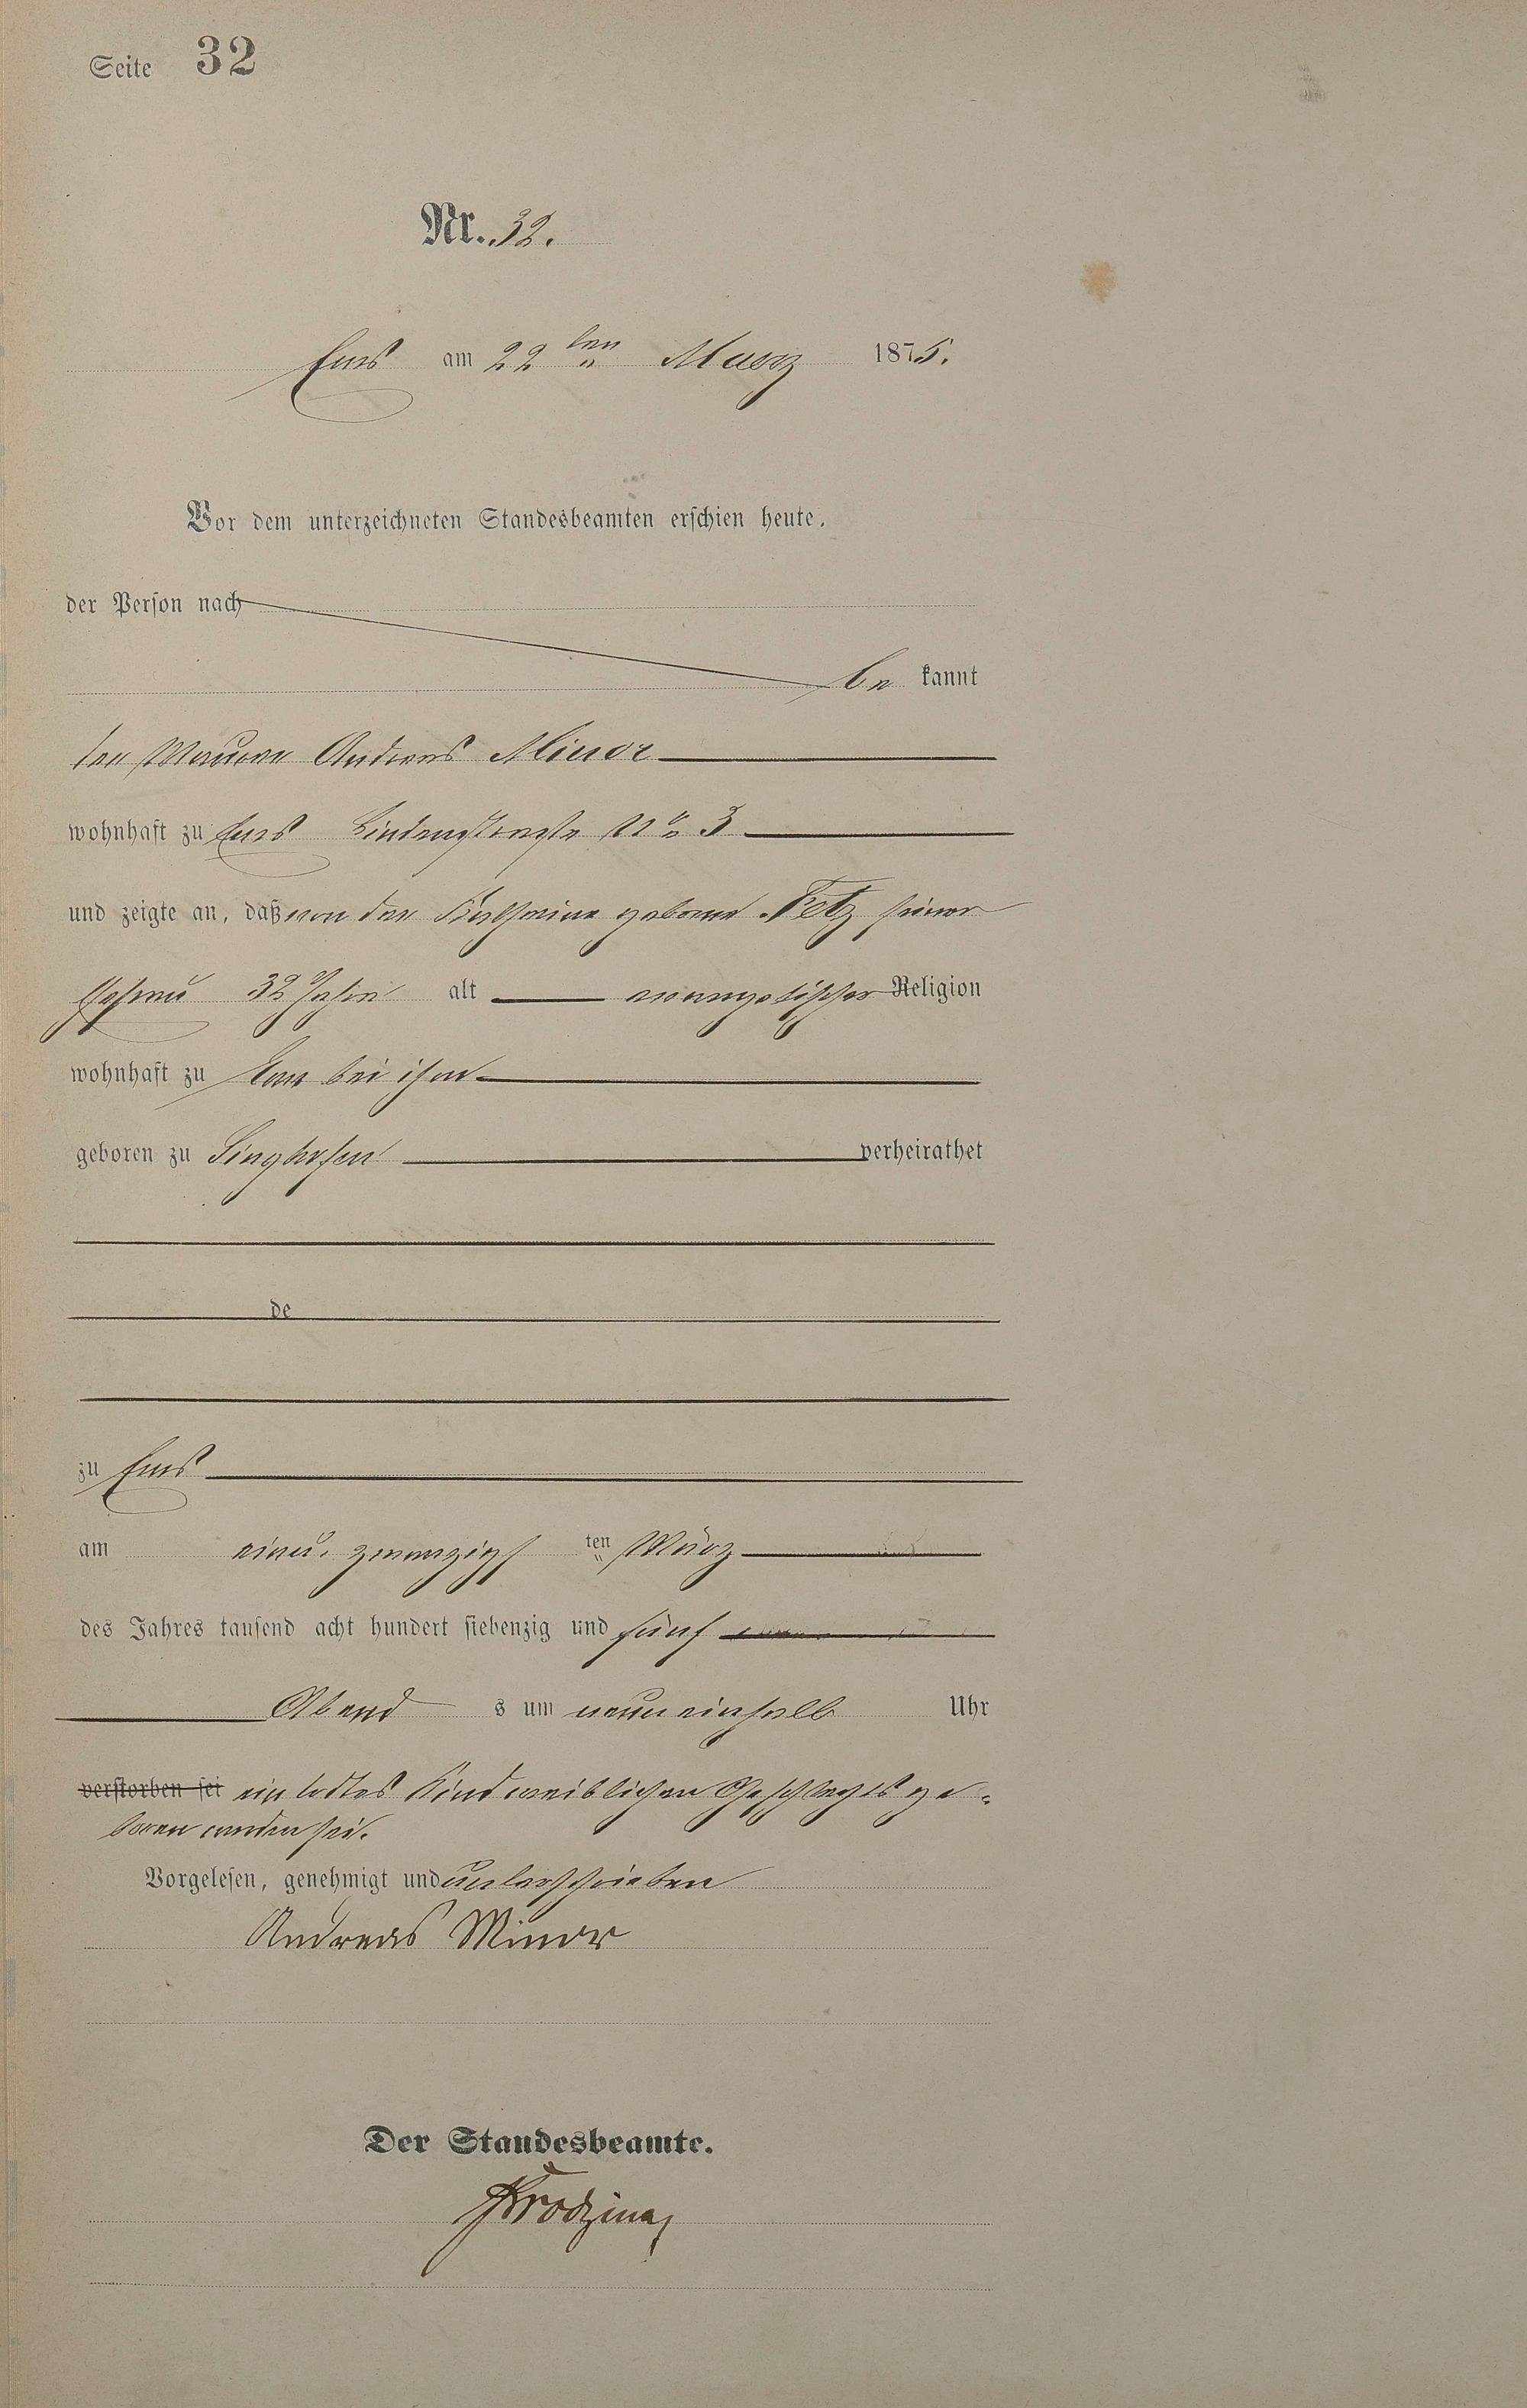 Seite 32
Nr. 32.
Ems am 22ten Maerz 1875.
Vor dem unterzeichneten Standesbeamten erschien heute,
der Person nach
be kannt
der Maurer Andreas Minor
wohnhaft zu Ems Lindenstraße No 3
und zeigte an, daß von der Katharine geborne Fetz seiner
Ehefrau 32 Jahre alt evangelischer Religion
wohnhaft zu Ems bei ihm
geboren zu Singhofen verheirathet
de
zu Ems
am einu. zwanzigs ten März
des Jahres tausend acht hundert siebenzig und fünf
Abend s um neun einhalb Uhr
verstorben sei ein todtes Kind weiblichen Geschlechts ge-
boren worden sei.
Vorgelesen, genehmigt und unterschrieben
Andreas Minor
Der Standesbeamte.